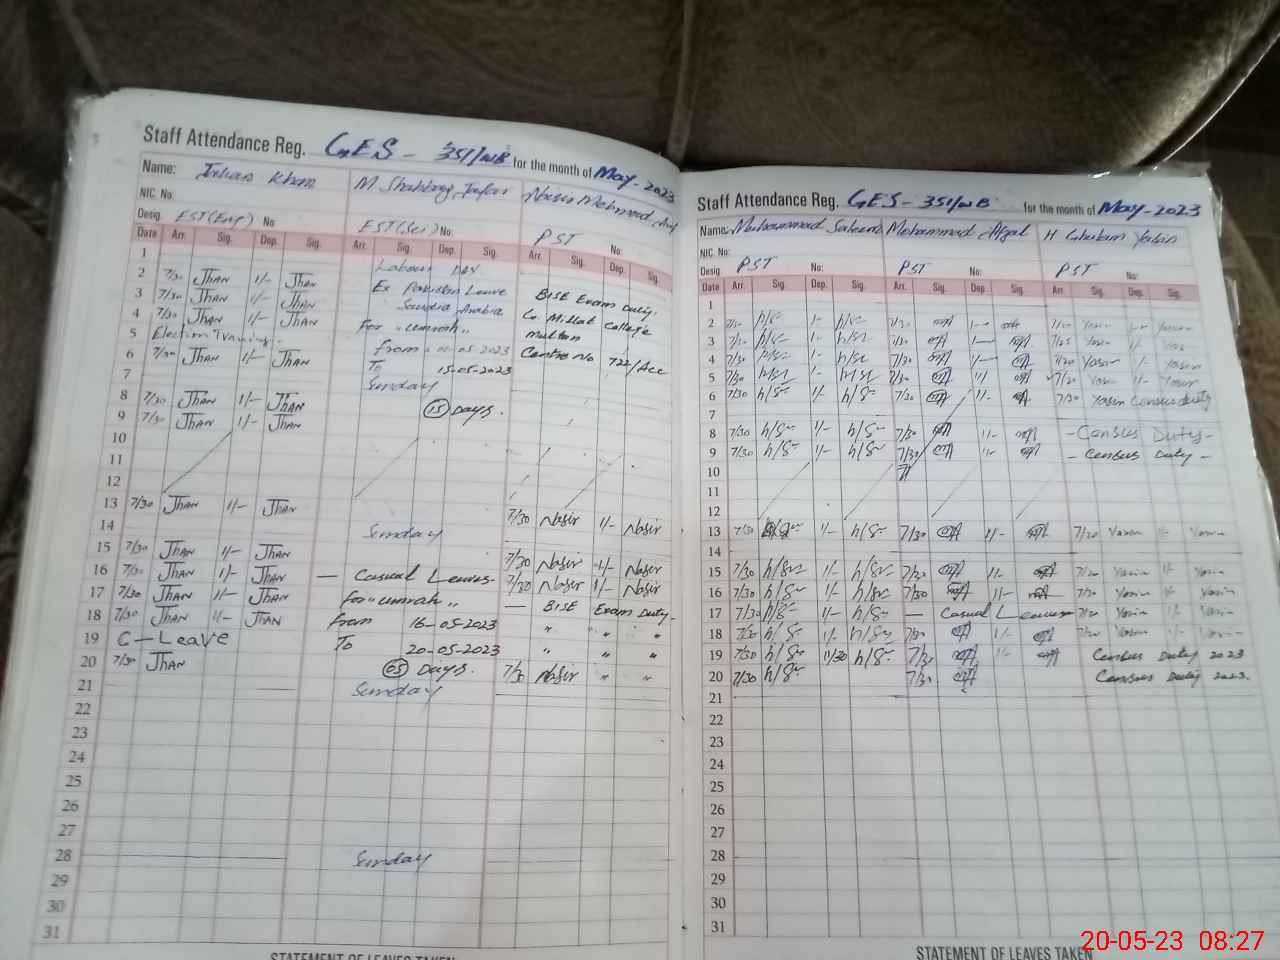 Staff Attendance Reg. GES - 351/WB for the month of May-2023
Name: Jehan Khan M. Shahbaz Nasir Mehmood
NIC. No.
Desig. EST(Eng) No EST(Sci) No PST No:
Date Arr. Sig. Dep. Sig. Arr. Sig. Dep. Sig. Arr. Sig. Dep. Sig.
1 Labour Day
2 7/30 JHAN 1/- JHAN Ex Pakistan Leave BISE Exam Duty.
3 7/30 JHAN 1/- JHAN Saudia Arabia Millat College
4 7/30 JHAN 1/- JHAN For "Umrah" Multan
5 Election Training. from 01-05-2023 Centre No 722/Acc
6 7/30 JHAN 1/- JHAN To 15-05-2023
7 Sunday
8 7/30 JHAN 1/- JHAN 15 Days.
9 7/30 JHAN 1/- JHAN
10
11
12
13 7/30 JHAN 1/- JHAN 7/30 Nasir 1/- Nasir
14 Sunday
15 7/30 JHAN 1/- JHAN 7/30 Nasir 1/- Nasir
16 7/30 JHAN 1/- JHAN — Casual Leaves- 7/30 Nasir 1/- Nasir
17 7/30 JHAN 1/- JHAN for "umrah" — BISE Exam Duty-
18 7/30 JHAN 1/- JHAN from 16-05-2023 " " "
19 C-Leave To 20-05-2023 " " "
20 7/30 JHAN 05 Days. 7/30 Nasir " "
21 Sunday
22
23
24
25
26
27
28 Sunday
29
30
31
STATEMENT OF LEAVES TAKEN
Staff Attendance Reg. GES - 351/WB for the month of May-2023
Name: Muhammad Saleem Mohammad Afzal H Ghulam Yasin
NIC. No:
Desig PST No: PST No: PST No:
Date Arr. Sig. Dep. Sig. Arr. Sig. Dep. Sig. Arr. Sig. Dep. Sig.
1
2 7/30 1/- 7/30 1/- 7/20 Yasin 1/- Yasin
3 7/30 1/- 7/30 1/- 7/25 Yasin 1/-
4 7/30 1/- 7/30 1/- 7/20 Yasin 1/- Yasin
5 7/30 1/- 7/30 1/- 7/20 Yasin 1/- Yasin
6 7/30 1/- 7/30 1/- 7/30 Yasin Census duty
7
8 7/30 1/- 7/30 1/- -Census Duty-
9 7/30 1/- 7/30 1/- - Census Duty -
10 7/
11
12
13 7/30 1/- 7/30 1/- 7/20 Yasin 1/- Yasin
14
15 7/30 1/- 7/30 1/- 7/20 Yasin 1/- Yasin
16 7/30 1/- 7/30 1/- 7/20 Yasin 1/- Yasin
17 7/30 1/- — Casual Leave 7/20 Yasin 1/- Yasin
18 7/30 1/- 7/30 1/- 7/20 Yasin 1/- Yasin
19 7/30 11/30 7/30 1/- Census Duty 2023
20 7/30 7/30 Census Duty 2023.
21
22
23
24
25
26
27
28
29
30
31
STATEMENT OF LEAVES TAKEN
20-05-23 08:27